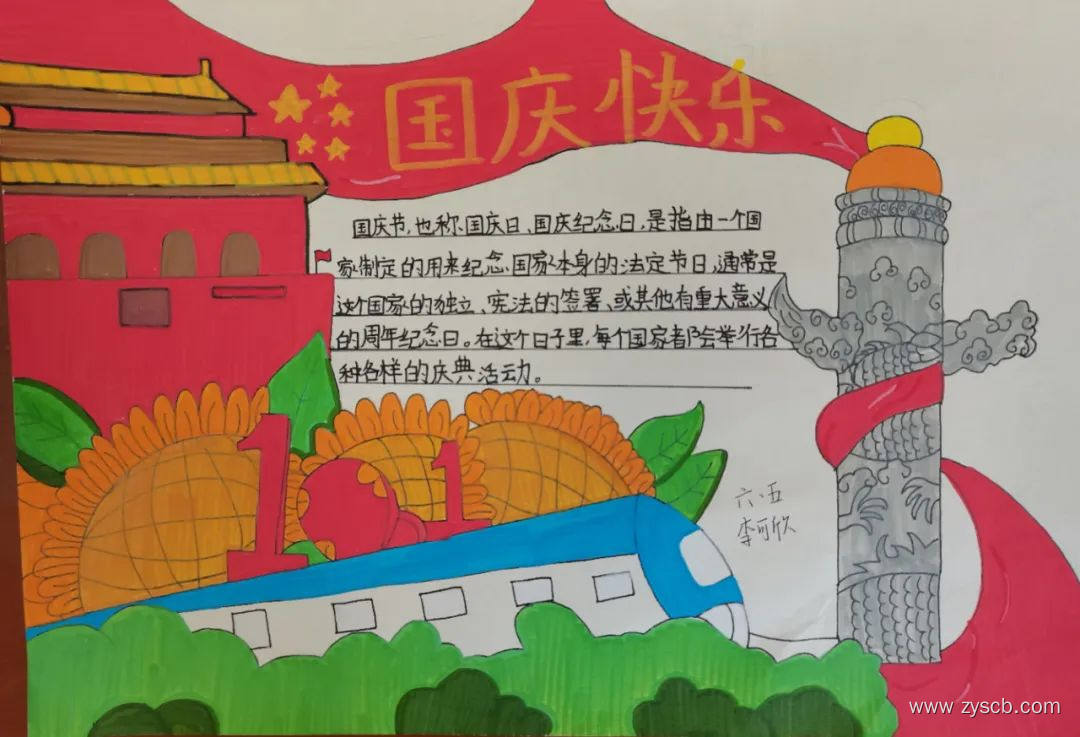 国庆快乐
国庆节,也称国庆日、国庆纪念日,是指由一个国
家制定的用来纪念国家本身的法定节日,通常是
这个国家的独立、宪法的签署、或其他有重大意义
的周年纪念日。在这个日子里,每个国家都会举行各
种各样的庆典活动。
10.1
六.五
李可欣
www.zyscb.com